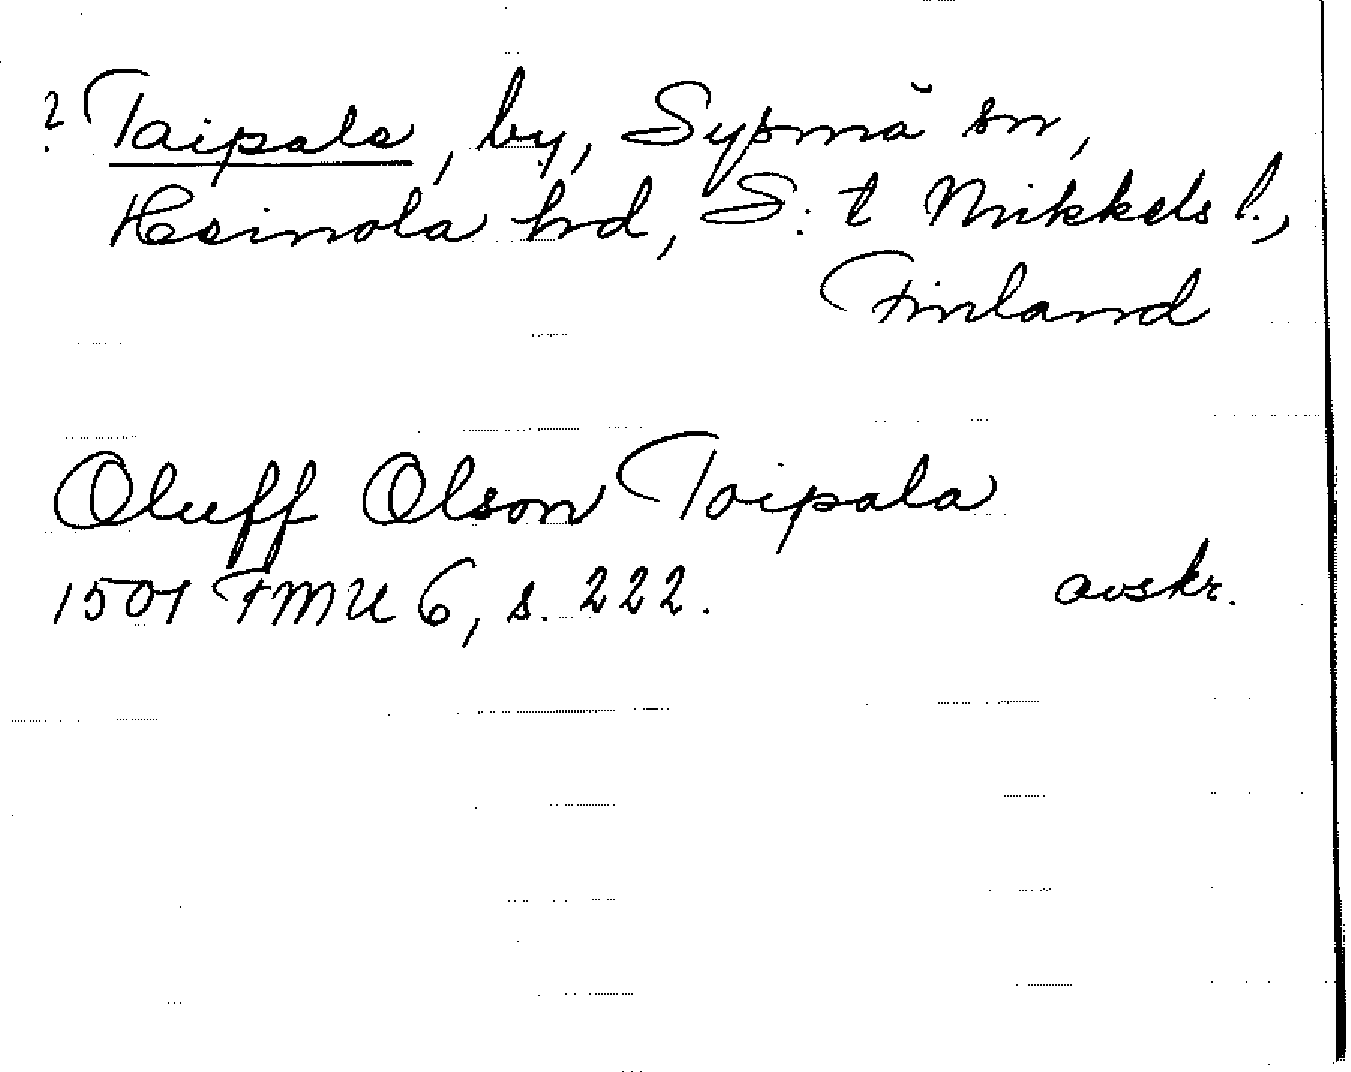 ? Taipale, by, Sysmä sn,
Heinola hd, S:t Mikkels l.,
Finland
Oluff Olson Toipala
1507 FMU 6, s. 222. avskr.